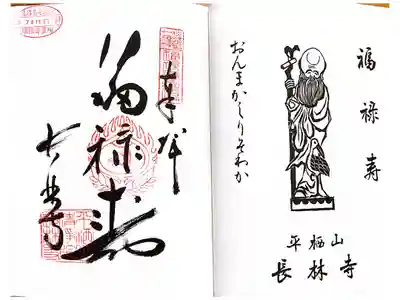 福禄寿
おんまかしりそわか
平栖山
長林寺
奉拝
福禄寿
長林寺